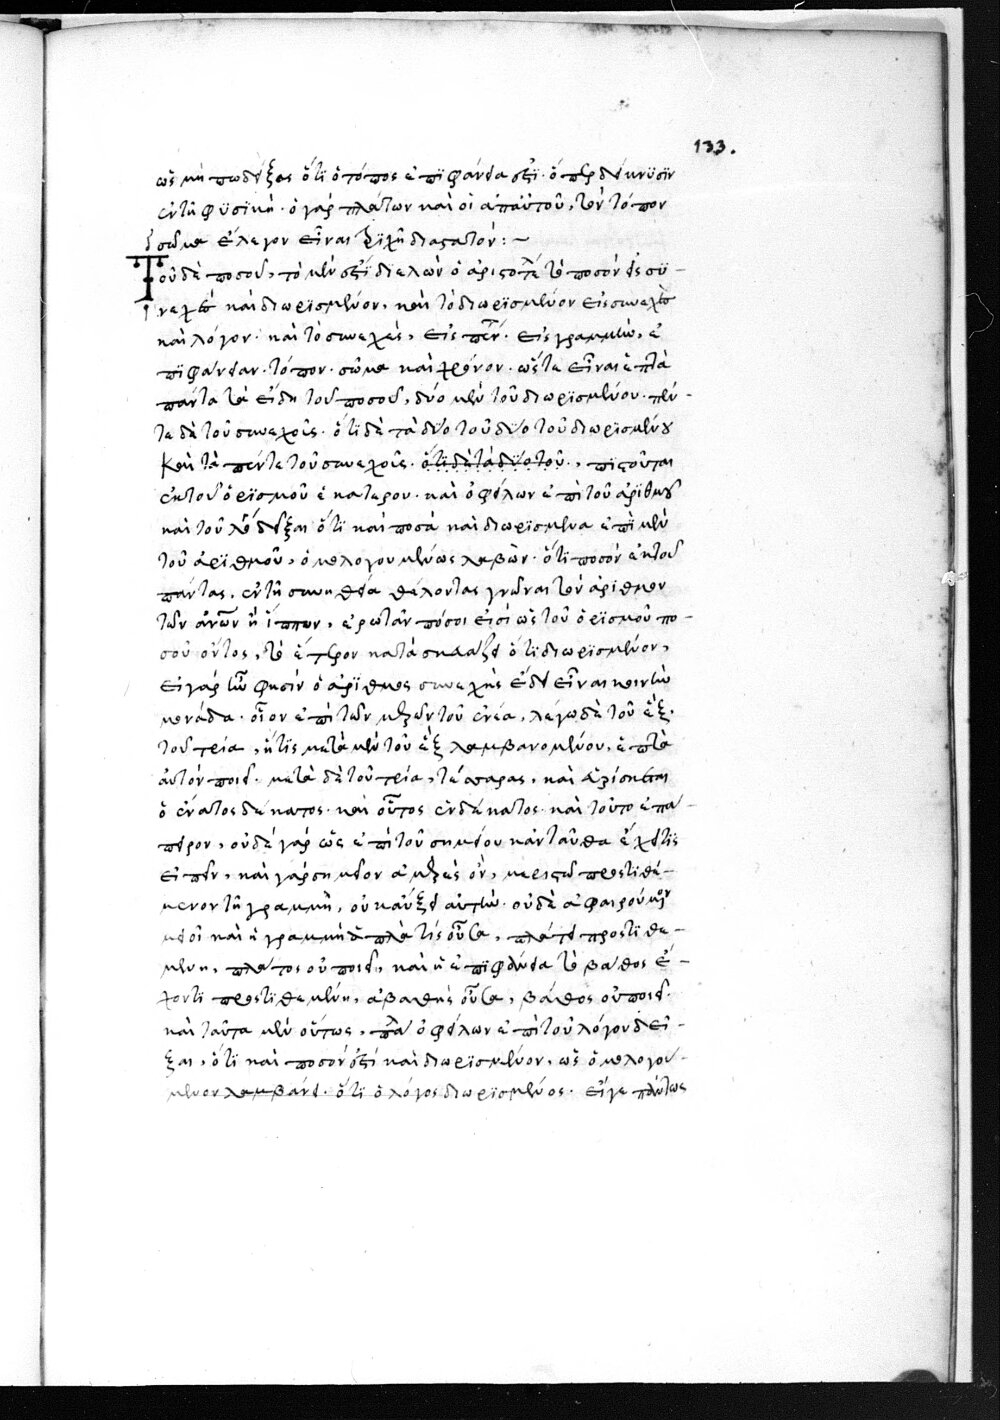 133.
ὡς μὴ ποδείξας ὅτι ὁ τόπος ἐπιφάνεια ἐστί· ὅπερ δείκνυσιν
ἐν τῇ φυσικῇ· ὁ γὰρ πλάτων καὶ οἱ ἀπ' αὐτοῦ, τὸν τόπον
σῶμα ἔλεγον εἶναι τριχῆ διαστατόν:~
Τοῦ δὲ ποσοῦ, τὸ μὲν ἐστί διελὼν ὁ ἀριστοτέλης τὸ ποσὸν εἰς συ-
νεχὲς καὶ διωρισμένον, καὶ τὸ διωρισμένον εἰς
καὶ λόγον· καὶ τὸ συνεχὲς, εἰς πέντε· εἰς γραμμὴν, ἐ
πιφάνειαν· τόπον· σῶμα καὶ χρόνον· ὥστε εἶναι ἑπτὰ
πάντα τὰ εἴδη τοῦ ποσοῦ, δύο μὲν τοῦ διωρισμένου· πέν-
τε δὲ τοῦ συνεχοῦς· ὅτι δὲ τὰ δύο τοῦ δύο τοῦ διωρισμένου
καὶ τὰ πέντε τοῦ συνεχοῦς· ὅτι δὲ τὰ δύο τοῦ·, πιστοῦται
ἐκ τοῦ ὁρισμοῦ ἑκατέρου· καὶ ὀφείλων ἐπὶ τοῦ ἀριθμοῦ
καὶ τοῦ λόγου δεῖξαι ὅτι καὶ ποσὰ καὶ διωρισμένα ἐπὶ μὲν
τοῦ ἀριθμοῦ, ὁμολογουμένως λαβὼν· ὅτι ποσὸν ἐκ τοῦ
πάντας, ἐν τῇ συνηθεία θέλοντας γνῶναι τὸν ἀριθμὸν
τῶν ἀνθρώπων ἢ ἵππων, ἐρωτᾶν πόσοι εἰσὶ ὡς τοῦ ὁρισμοῦ πο-
σοῦ ὄντος, τὸ ἕτερον κατασκευάζει ὅτι διωρισμένον,
εἰ γὰρ ἦν φησὶν ὁ ἀριθμὸς συνεχὴς ἔδει εἶναι κοινὴν
μονάδα· οἷον ἐπὶ τῶν μερῶν τοῦ ἐνέα, λέγω δὲ τοῦ ἓξ·
τοῦ τρία, ἥτις μετὰ μὲν τοῦ ἓξ λαμβανομένου, ἑπτὰ
αὐτὸν ποιεῖ· μετὰ δὲ τοῦ τρία, τέσσαρας, καὶ εὑρίσκεται
ὁ ἔνατος δέκατος· καὶ οὗτος ἑνδέκατος· καὶ τοῦτο ἐπ' ἄ-
πειρον, οὐδὲ γὰρ ὡς ἐπὶ τοῦ σημείου κἀνταῦθα ἔχει τις
εἰπεῖν, καὶ γὰρ σημεῖον ἀμερὲς ὂν, προστιθέ-
μενον τῇ γραμμῇ, οὐκ αὔξει αὐτὴν· οὐδὲ ἀφαιρούμενον
μειοῖ καὶ ἡ γραμμὴ ἀπλατὴς οὖσα, πλάτει προστιθε-
μένη, πλάτος οὐ ποιεῖ, καὶ ἡ ἐπιφάνεια τὸ βάθος ἔ-
χοντι προστιθεμένη, ἀβαθὴς οὖσα, βάθος οὐ ποιεῖ·
καὶ ταῦτα μὲν οὕτως, πάλιν ὀφείλων ἐπὶ τοῦ λόγου δεῖ-
ξαι, ὅτι καὶ ποσὸν ἐστὶ καὶ διωρισμένον, ὡς ὁμολογού-
μενον λαμβάνει· ὅτι ὁ λόγος διωρισμένος· εἴγε πάντως